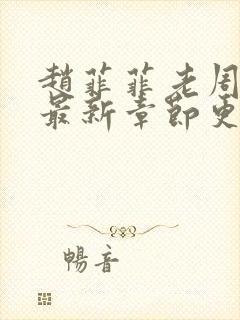 趙菲菲老周
最新章節更
暢音